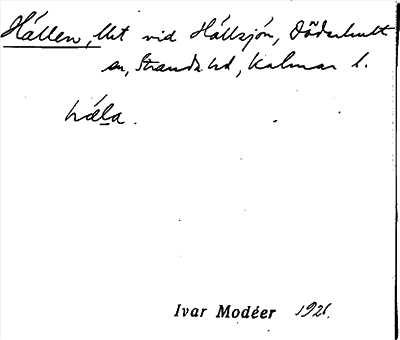 Hållen, tlt vid Hållsjön, Döderhult
sn, Stranda hd, Kalmar l.
hå̀la.
Ivar Modéer 1921.